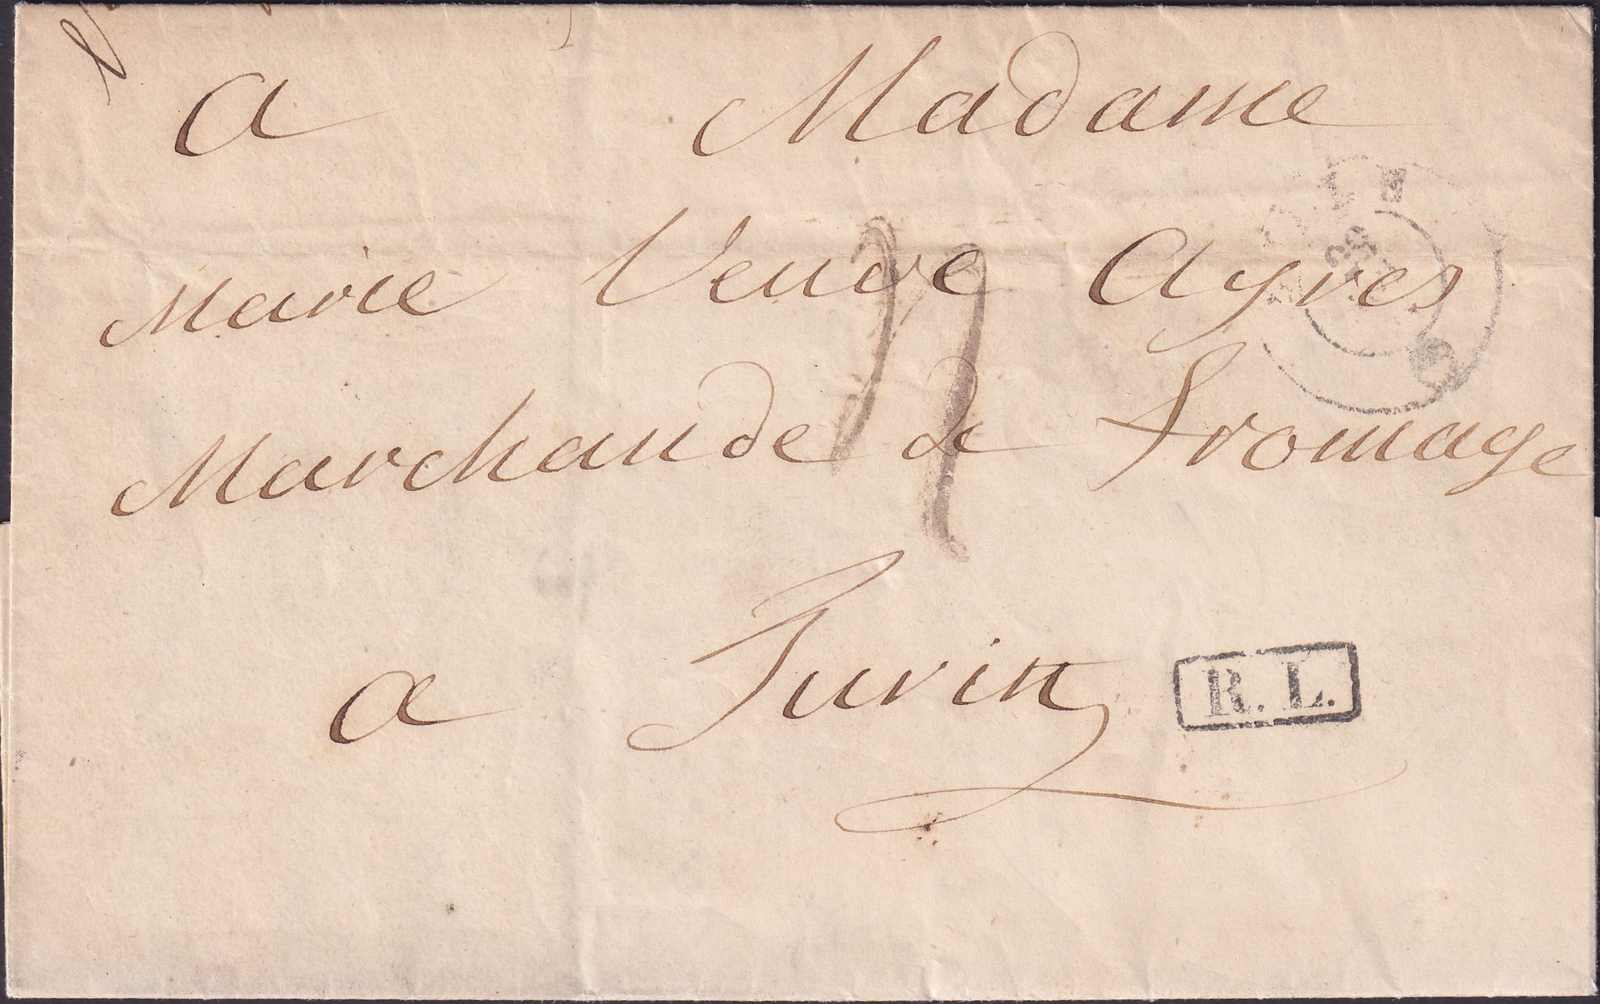 a Madame
Marie Veuve Ayres
Marchande de fromage
a Turin
R. L.